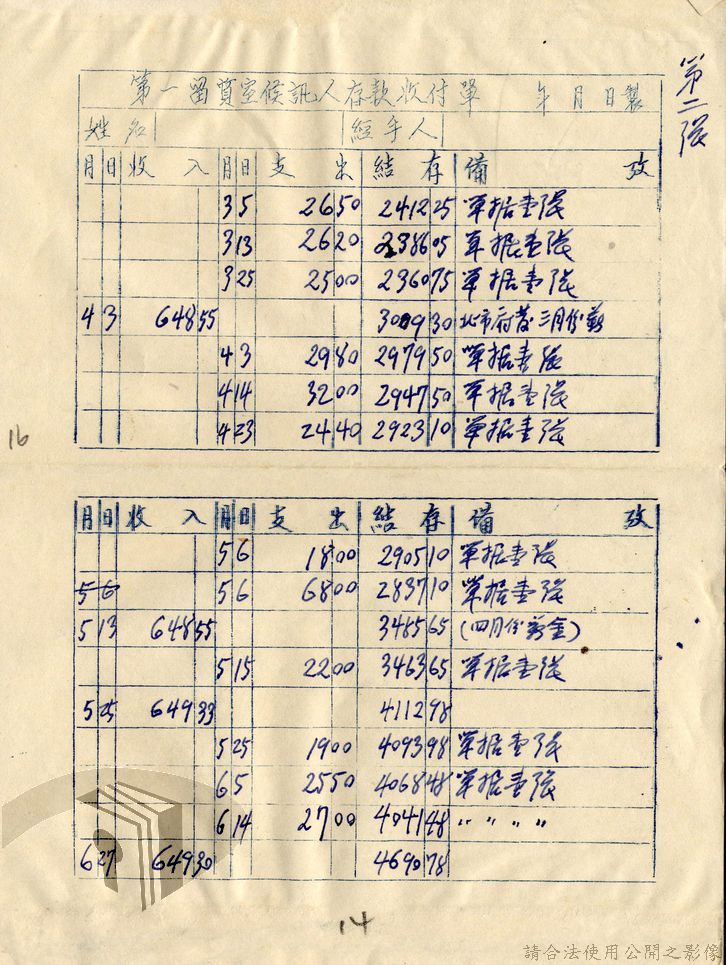 第二張
第一留質室候訊人存款收付單 年 月 日製
姓名 經手人
月 日 收 入 月 日 支 出 結 存 備 攷
3 5 26 50 2412 25 單据壹張
3 13 26 20 2386 05 單据壹張
3 25 25 00 2360 75 單据壹張
4 3 648 55 3009 30 北市府發三月份薪
4 3 29 80 2979 50 單据壹張
4 14 32 00 2947 50 單据壹張
4 23 24 40 2923 10 單据壹張
16
月 日 收 入 月 日 支 出 結 存 備 攷
5 6 18 00 2905 10 單据壹張
5 6 5 6 68 00 2837 10 單据壹張
5 13 648 55 3485 65 (四月份薪金)
5 15 22 00 3463 65 單据壹張
5 25 649 33 4112 98
5 25 19 00 4093 98 單据壹張
6 5 25 50 4068 48 單据壹張
6 14 27 00 4041 48 〃 〃 〃 〃
6 27 649 30 4690 78
14
請合法使用公開之影像